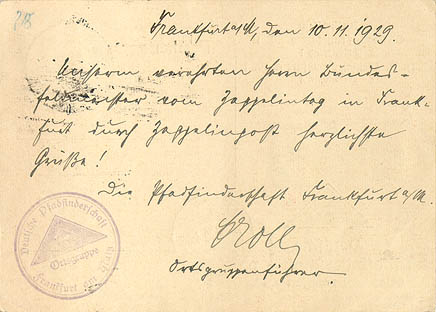 Frankfurt a/M, den 10.11.1929.
Unserm verehrten Herrn Bundes-
feldmeister vom Zeppelintag in Frank-
furt durch Zeppelinpost herzlichste
Grüße!
Die Pfadfinderschaft Frankfurt a/M.
Ortsgruppenführer.
Deutsche Pfadfinderschaft
Ortsgruppe
Frankfurt